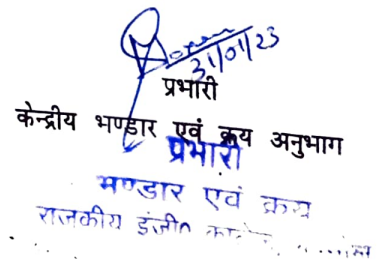 31/01/23
प्रभारी
केन्द्रीय भण्डार एवं क्रय अनुभाग
प्रभारी
भण्डार एवं क्रय
राजकीय इंजी०